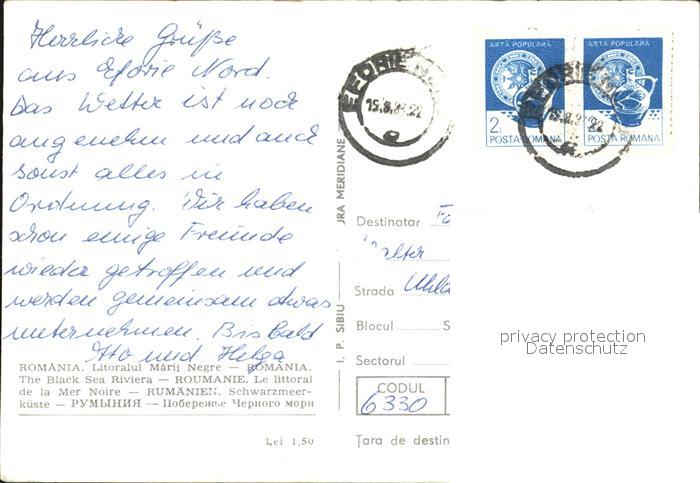 Herrliche Grüße
aus Eforie Nord.
Das Wetter ist noch
angenehm und auch
sonst alles in
Ordnung. Wir haben
schon einige Freunde
wieder getroffen und
werden gemeinsam etwas
unternehmen. Bis bald
Otto und Helga
ROMÂNIA. Litoralul Mării Negre — ROMANIA.
The Black Sea Riviera — ROUMANIE. Le littoral
de la Mer Noire — RUMÄNIEN. Schwarzmeer-
küste — РУМЫНИЯ — Побережье Черного моря
Lei 1,50
I. P. SIBIU
URA MERIDIANE
EFORIE
15.8.
ARTA POPULARĂ
2L
POSTA ROMANA
ARTA POPULARĂ
POSTA ROMANA
EFORIE
Destinatar
Walter
Strada
Blocul S
Sectorul
CODUL
6330
Țara de destin
privacy protection
Datenschutz